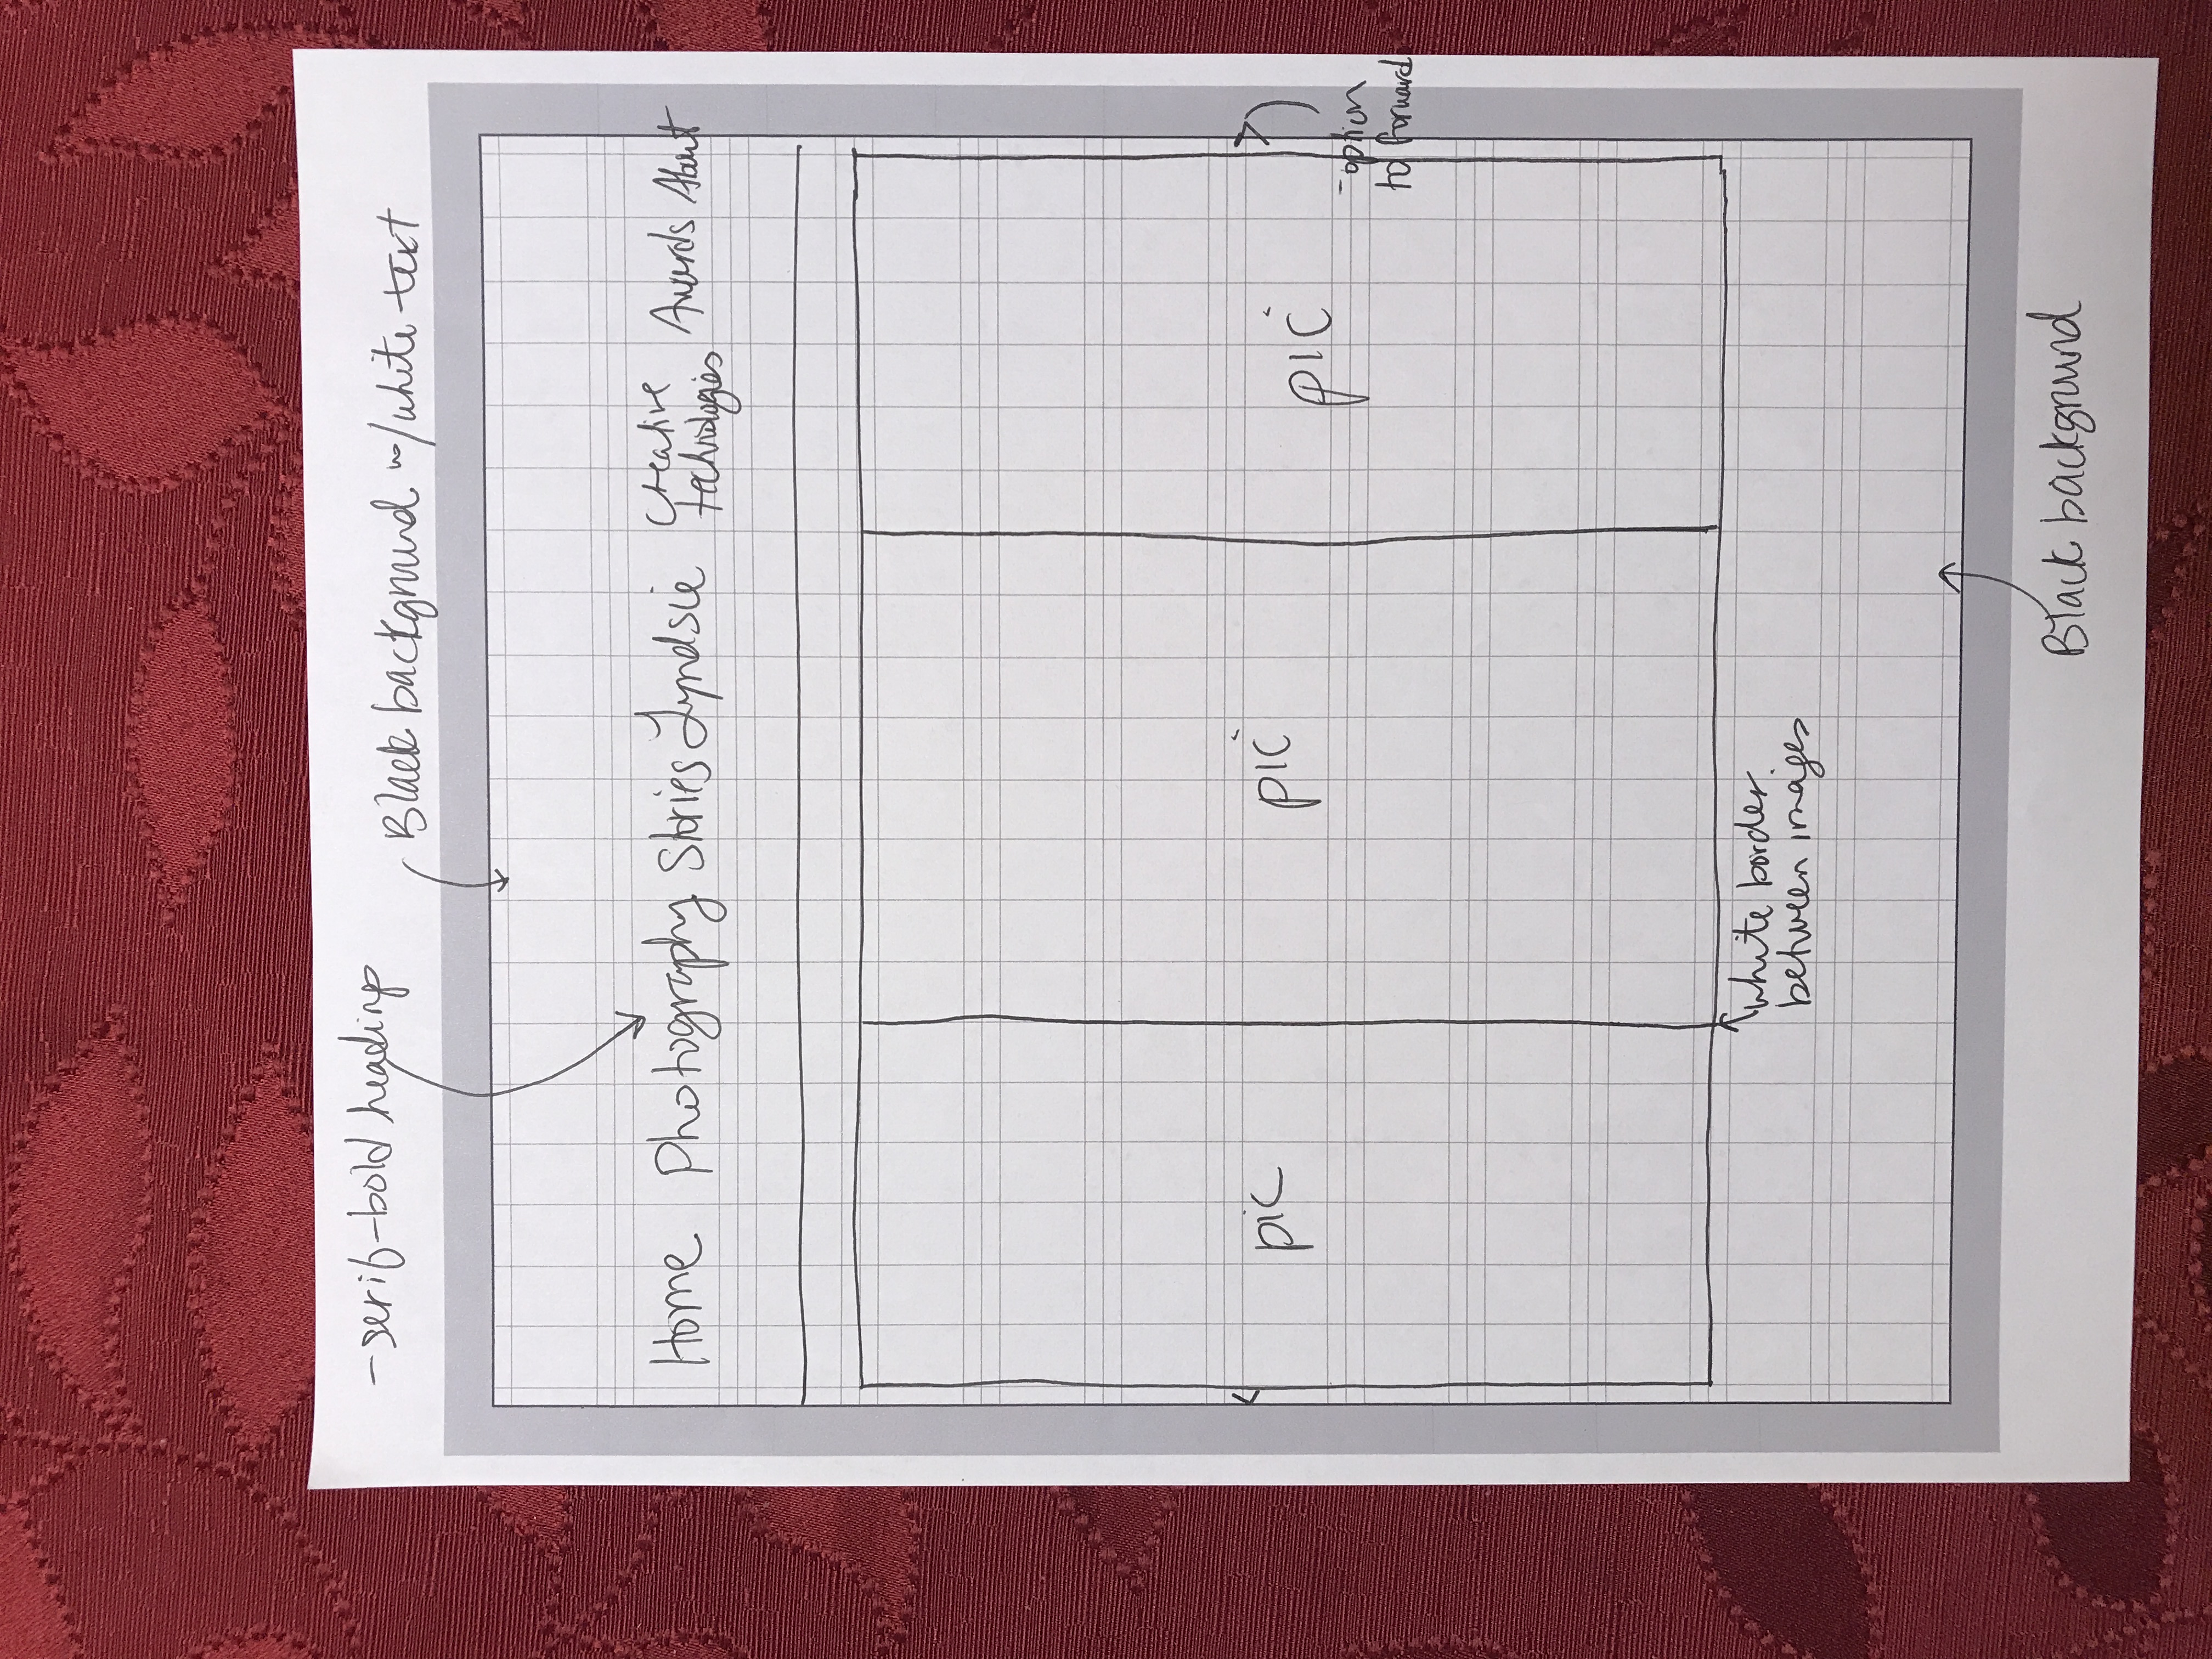 -serif-bold headings
Black background w/white text
Home Photography Stories Lyndsie Creative technologies Awards About
<
pic
pic
pic
>
-option
to forward
white border
between images
Black background